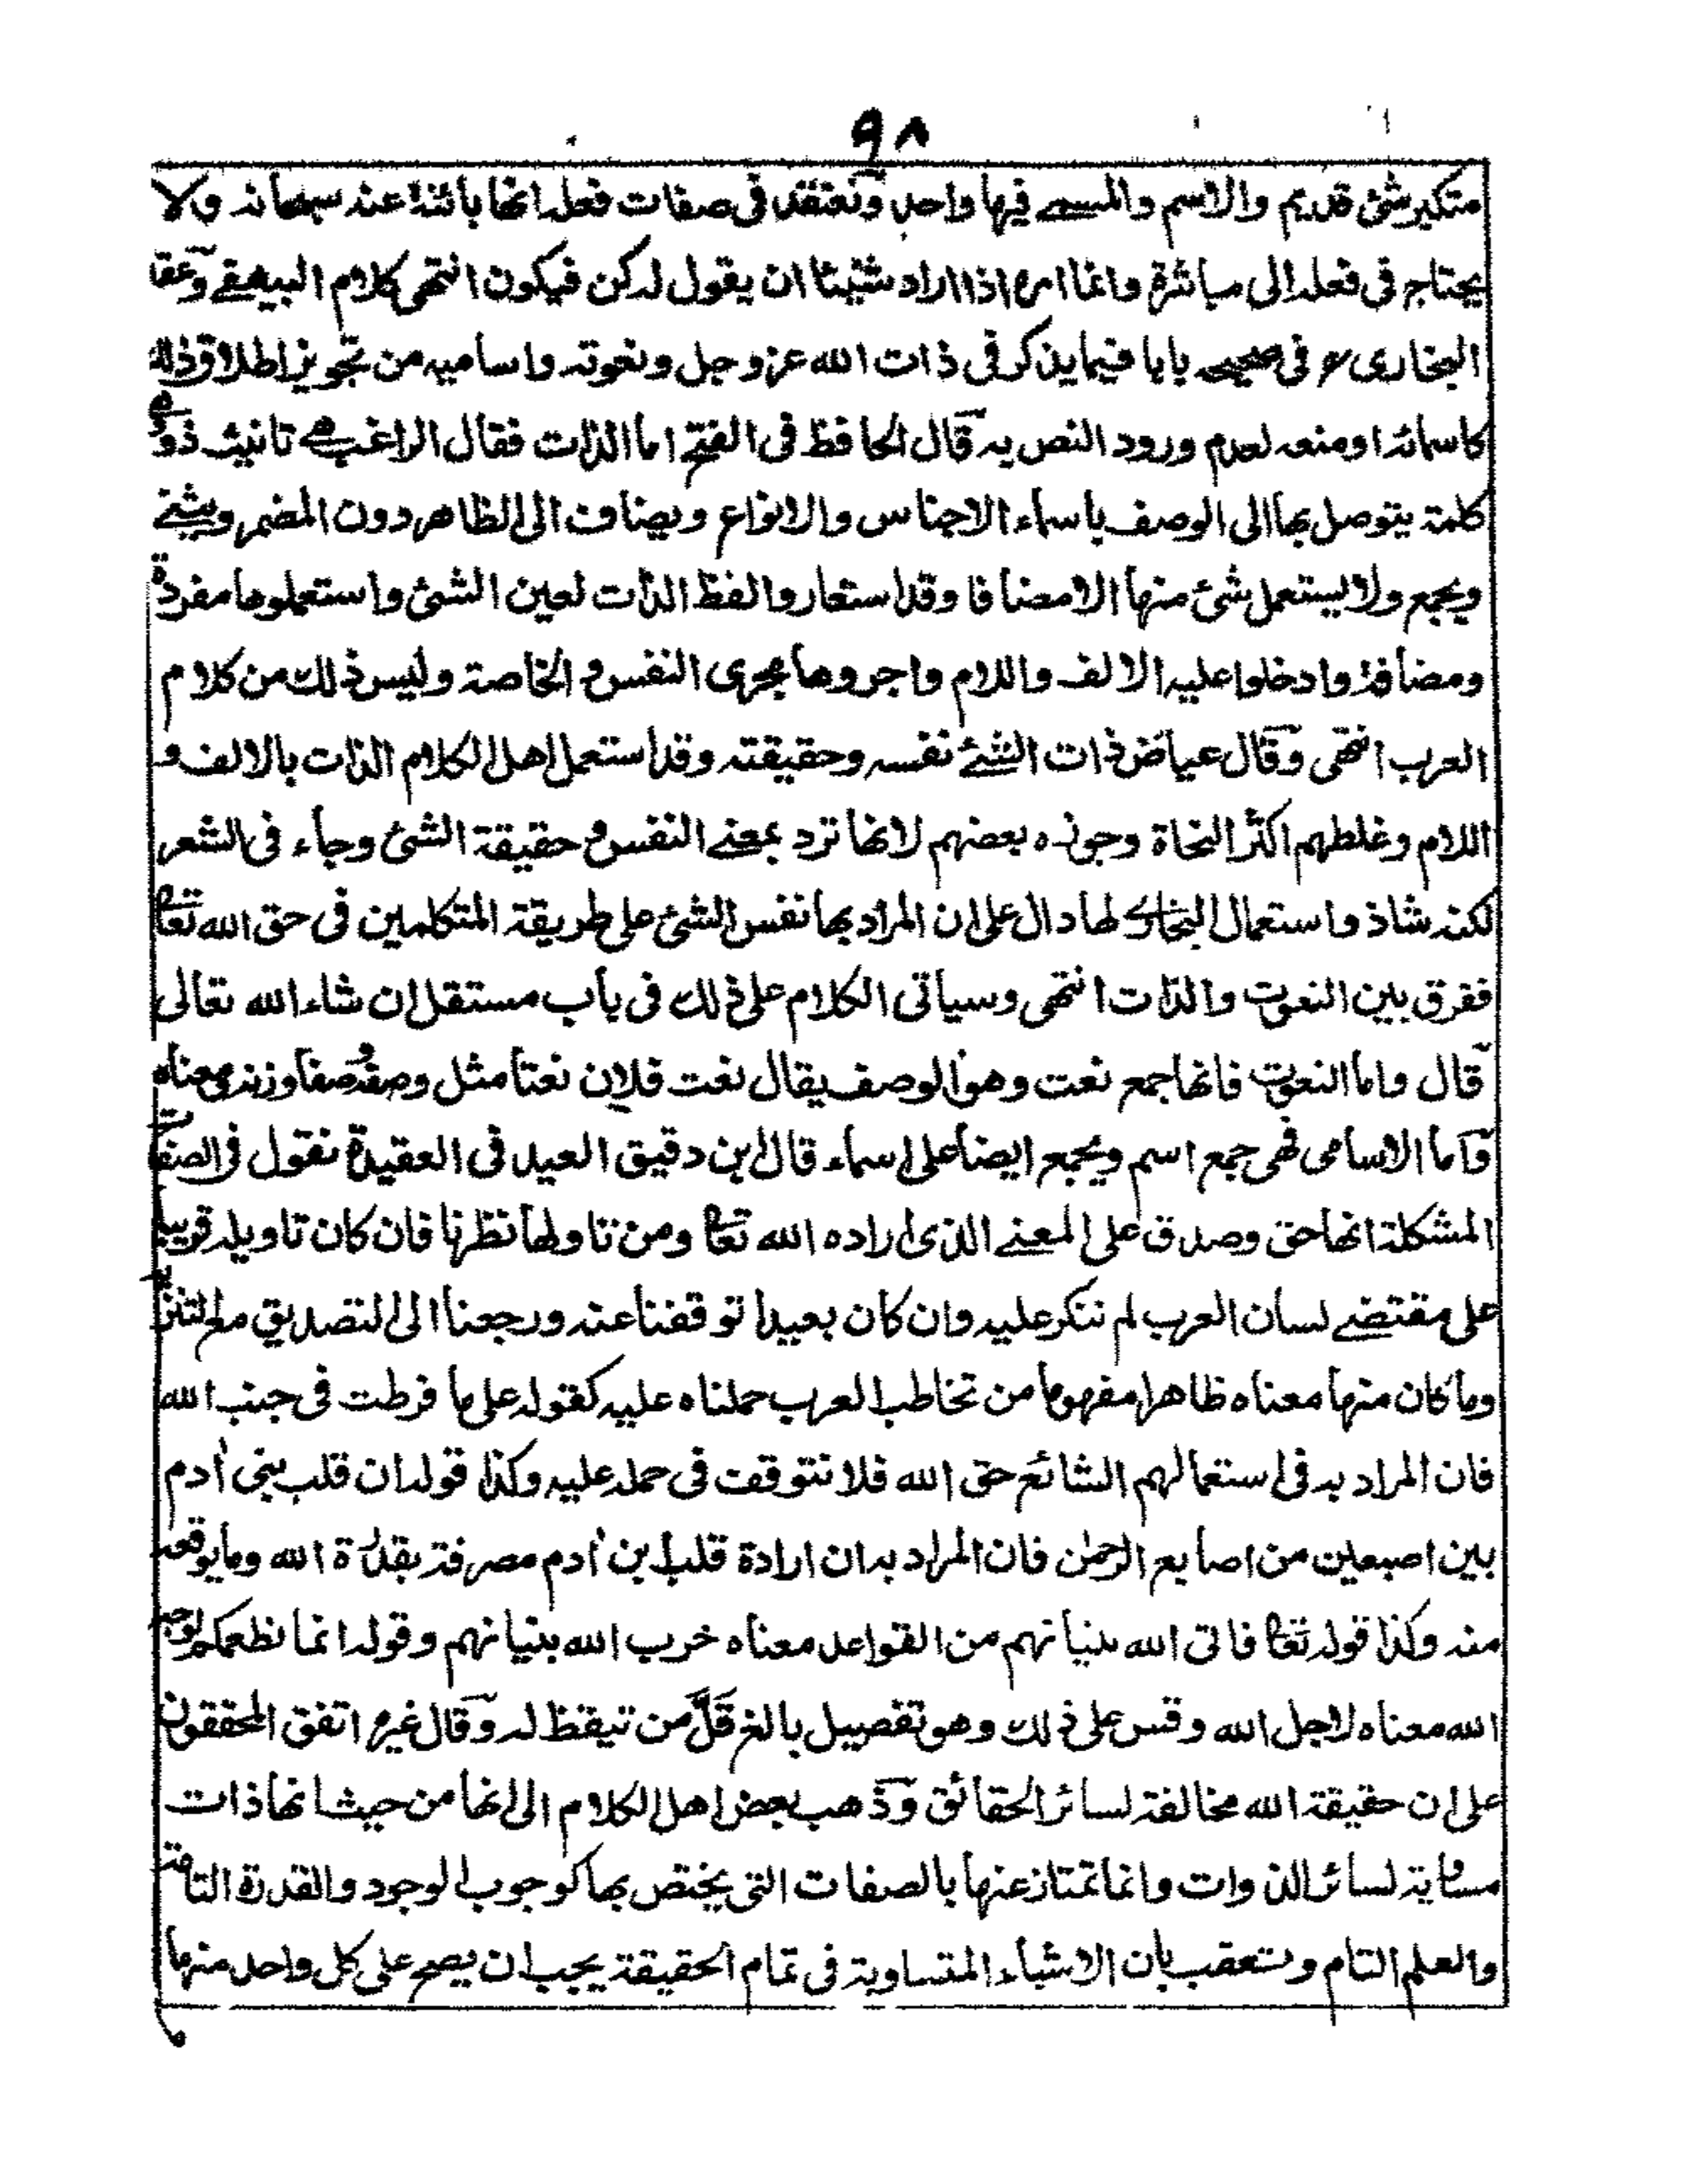 ٩٨
متكبر شئ قديم والاسم والمسمى فيها واحد ونعتقد فى صفات فعله انها بائنة عنه سبحانه ولا
يحتاج فى فعله الى مباشرة وانما امره اذا اراد شيئا ان يقول له كن فيكون انتهى كلام البيهقے وعقد
البخارى فى صحيحه بابا فيما يذكر فى ذات الله عز وجل ونعوته واساميه من تجويز اطلاق ذلك
كاسمائه او منعه لعدم ورود النص به قال الحافظ فى الفتح اما الذات فقال الراغب هے تانيث ذو وهے
كلمة يتوصل بها الى الوصف باسماء الاجناس والانواع ويضاف الى الظاهر دون المضمر ويثنے
ويجمع ولا يستعمل شئ منها الا مضافا وقد استعاروا لفظ الذات لعين الشئ واستعملوها مفردة
ومضافة وادخلوا عليه الالف واللام واجروها مجرى النفس والخاصة وليس ذلك من كلام
العرب انتهى وقال عياض ذات الشئے نفسه وحقيقته وقد استعمل اهل الكلام الذات بالالف و
اللام وغلطهم اكثر النحاة وجوزه بعضهم لانها ترد بمعنے النفس و حقيقة الشئ وجاء فى الشعر
لكنه شاذ واستعمال البخارے لها دال على ان المراد بها نفس الشئ على طريقة المتكلمين فى حق الله تعا
ففرق بين النعوت والذات انتهى وسياتى الكلام على ذلك فى باب مستقل ان شاء الله تعالى
قال واما النعوت فانها جمع نعت وهو الوصف يقال نعت فلان نعتا مثل وصفه وصفا وزنه ومعناه
واما الاسامى فهى جمع اسم ويجمع ايضا على اسماء قال ابن دقيق العيد فى العقيدة نقول فى الصفات
المشكلة انها حق وصدق على المعنے الذى اراده الله تعا ومن تاولها نظرنا فان كان تاويله قريبا
على مقتضے لسان العرب لم ننكر عليه وان كان بعيدا توقفنا عنه ورجعنا الى التصديق مع التنزيه
وما كان منها معناه ظاهرا مفهوما من تخاطب العرب حملناه عليه كقوله على ما فرطت فى جنب الله
فان المراد به فى استعمالهم الشائع حق الله فلا نتوقف فى حمله عليه وكذا قوله ان قلب بنى ادم
بين اصبعين من اصابع الرحمن فان المراد به ان ارادة قلب ابن ادم مصرفة بقدرة الله وما يوقعه
منه وكذا قوله تعا فاتى الله بنيانهم من القواعد معناه خرب الله بنيانهم وقوله انما نطعمكم لوجه
الله معناه لاجل الله وقس على ذلك وهو تفصيل بالغ قلّ من تيقظ له وقال غيره اتفق المحققون
على ان حقيقة الله مخالفة لسائر الحقائق وذهب بعض اهل الكلام الى انها من حيث انها ذات
مساوية لسائر الذوات وانما تمتاز عنها بالصفات التى يختص بها كوجوب الوجود والقدرة التامة
والعلم التام وتعقب بان الاشياء المتساوية فى تمام الحقيقة يجب ان يصح على كل واحد منها